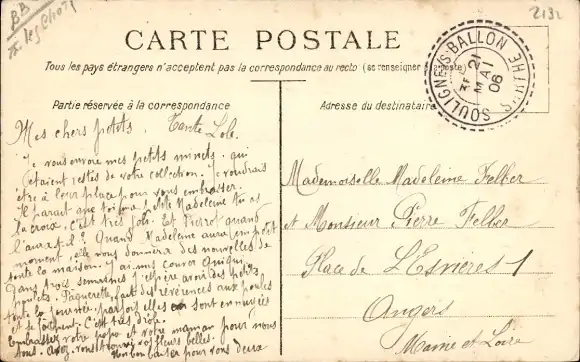 BB
2132
CARTE POSTALE
Tous les pays étrangers n'acceptent pas la correspondance au recto (se renseigner à la poste)
SOULIGNÉ-S-BALLON SARTHE
21
MAI
06
Partie réservée à la correspondance
Adresse du destinataire
Mes chers petits. Tante Lole.
Je vous envoie mes petits minets qui
étaient restés de votre collection. Je voudrais
être à leur place pour vous embrasser.
Il paraît que toi ma petite Madeleine tu as
la croix, c'est très joli. Et Pierrot quand
l'aura-t-il? Quand Madeleine aura un petit
moment, elle vous donnera des nouvelles de
toute la maison. J'ai mis couver
Dans trois semaines j'espère avoir des petits
poulets. Paquerette fait des révérences aux poules
toute la journée, parfois elles en sont ennuyées
et se fâchent. C'est très drôle.
Embrassez votre papa et votre maman pour nous
tous. Avez-vous trouvé vos fleurs belles.
Un bon baiser pour vous deux
Mademoiselle Madeleine Felber
et Monsieur Pierre Felber
Place de L'Esvières 1
Angers
Maine et Loire